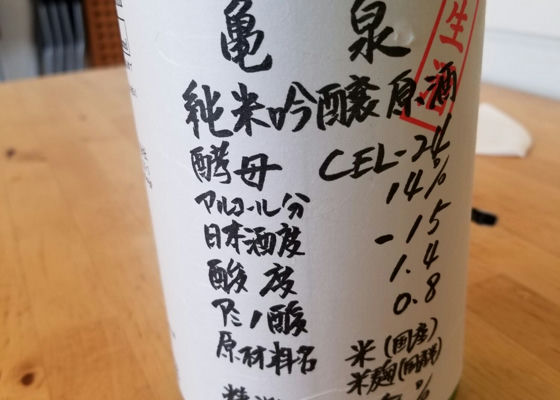 亀泉
生酒
純米吟醸原酒
酵母 CEL-24
アルコール分 14%
日本酒度 -15
酸度 1.4
アミノ酸 0.8
原材料名 米(国産)
米麹(同詳)